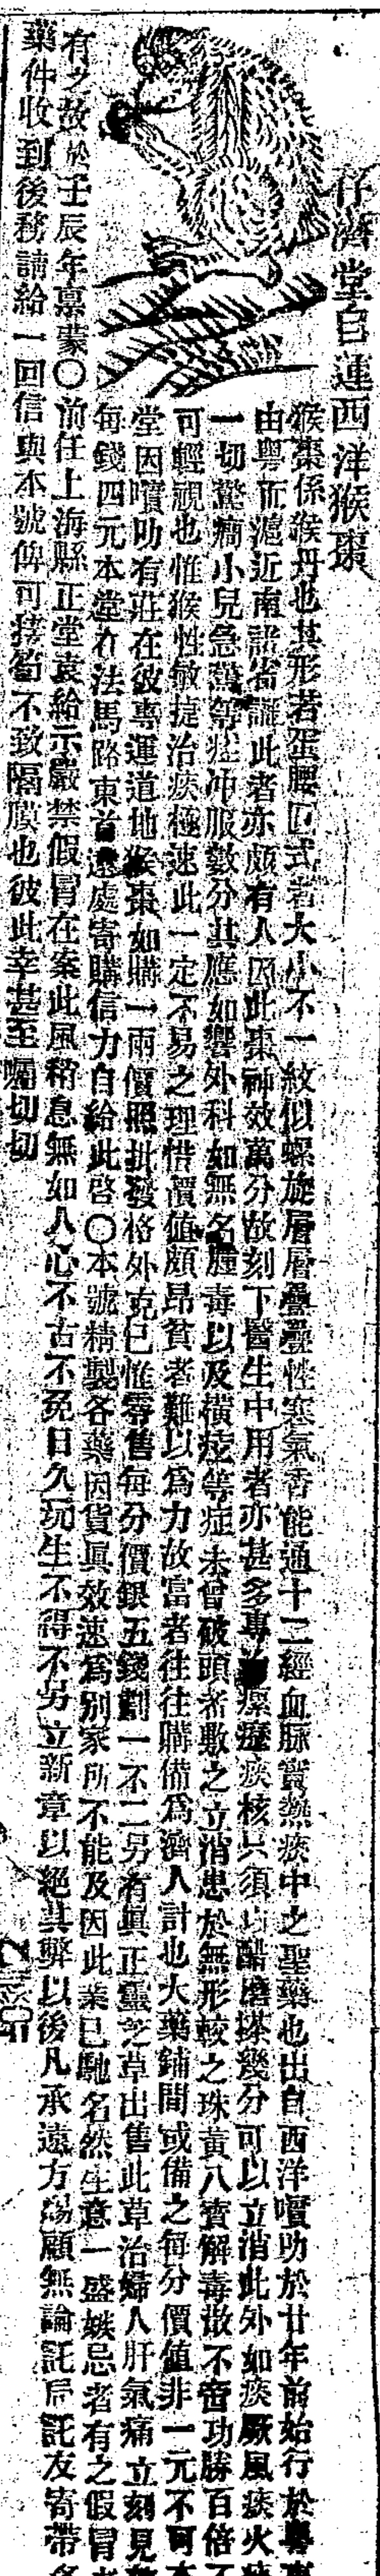 仔濟堂自運西洋猴棗
猴棗係猴丹也其形若蛋腰圓式者大小不一紋似螺旋層層疊疊性寒氣香能通十二經血脉實熱痰中之聖藥也出自西洋嗊叻於廿年前始行於粤
由粤而滬近南諸省識此者亦頗有人因此棗神效萬分故刻下醫生中用者亦甚多專治瘰癧痰核只須以醋磨搽幾分可以立消此外如痰厥風痰火
一切驚癎小兒急驚等症冲服數分其應如響外科如無名腫毒以及橫痃等症未曾破頭者敷之立消患於無形較之珠黃八寶解毒散不啻功勝百倍
可輕視也惟猴性敏捷治痰極速此一定不易之理惜價值頗昂貧者難以爲力故富者往往購備爲濟人計也大藥鋪間或備之每分價值非一元不可本
堂因嗊叻有莊在彼專運道地猴棗如購一兩價照批發格外克已惟零售每分價銀五錢劃一不二另有真正靈芝草出售此草治婦人肝氣痛立刻見效
每錢四元本堂在法馬路東首遠處寄購信力自給此啓〇本號精製各藥因貨真效速爲別家所不能及因此業已馳名然生意一盛嫉忌者有之假冒者
有之故於壬辰年禀蒙〇前任上海縣正堂袁給示嚴禁假冒在案此風稍息無如人心不古不免日久玩生不得不另立新章以絕其弊以後凡承遠方賜顧無論託局託友寄帶
藥件收到後務請給一回信與本號俾可接洽不致隔膜也彼此幸甚至囑切切